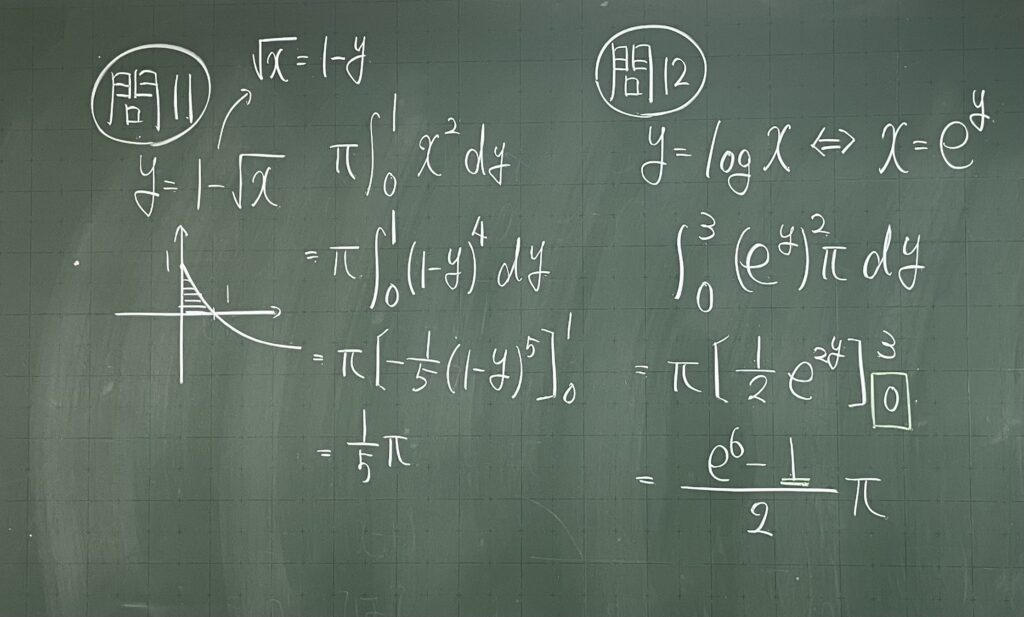 問11
√x = 1-y
y = 1-√x
1
1
π∫₀¹ x² dy
= π∫₀¹ (1-y)⁴ dy
= π[-1/5 (1-y)⁵]₀¹
= 1/5 π
問12
y = log x ⇔ x = e^y
∫₀³ (e^y)² π dy
= π[1/2 e^{2y}]₀³
= (e⁶ - 1)/2 π